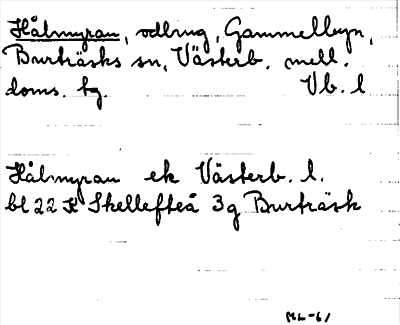 Hålmyran, odling, Gammelbyn,
Burträsks sn, Västerb. mell.
doms. hg. Vb. l
Hålmyran ek Västerb. l.
bl 22 Skellefteå 3g Burträsk
ML-61